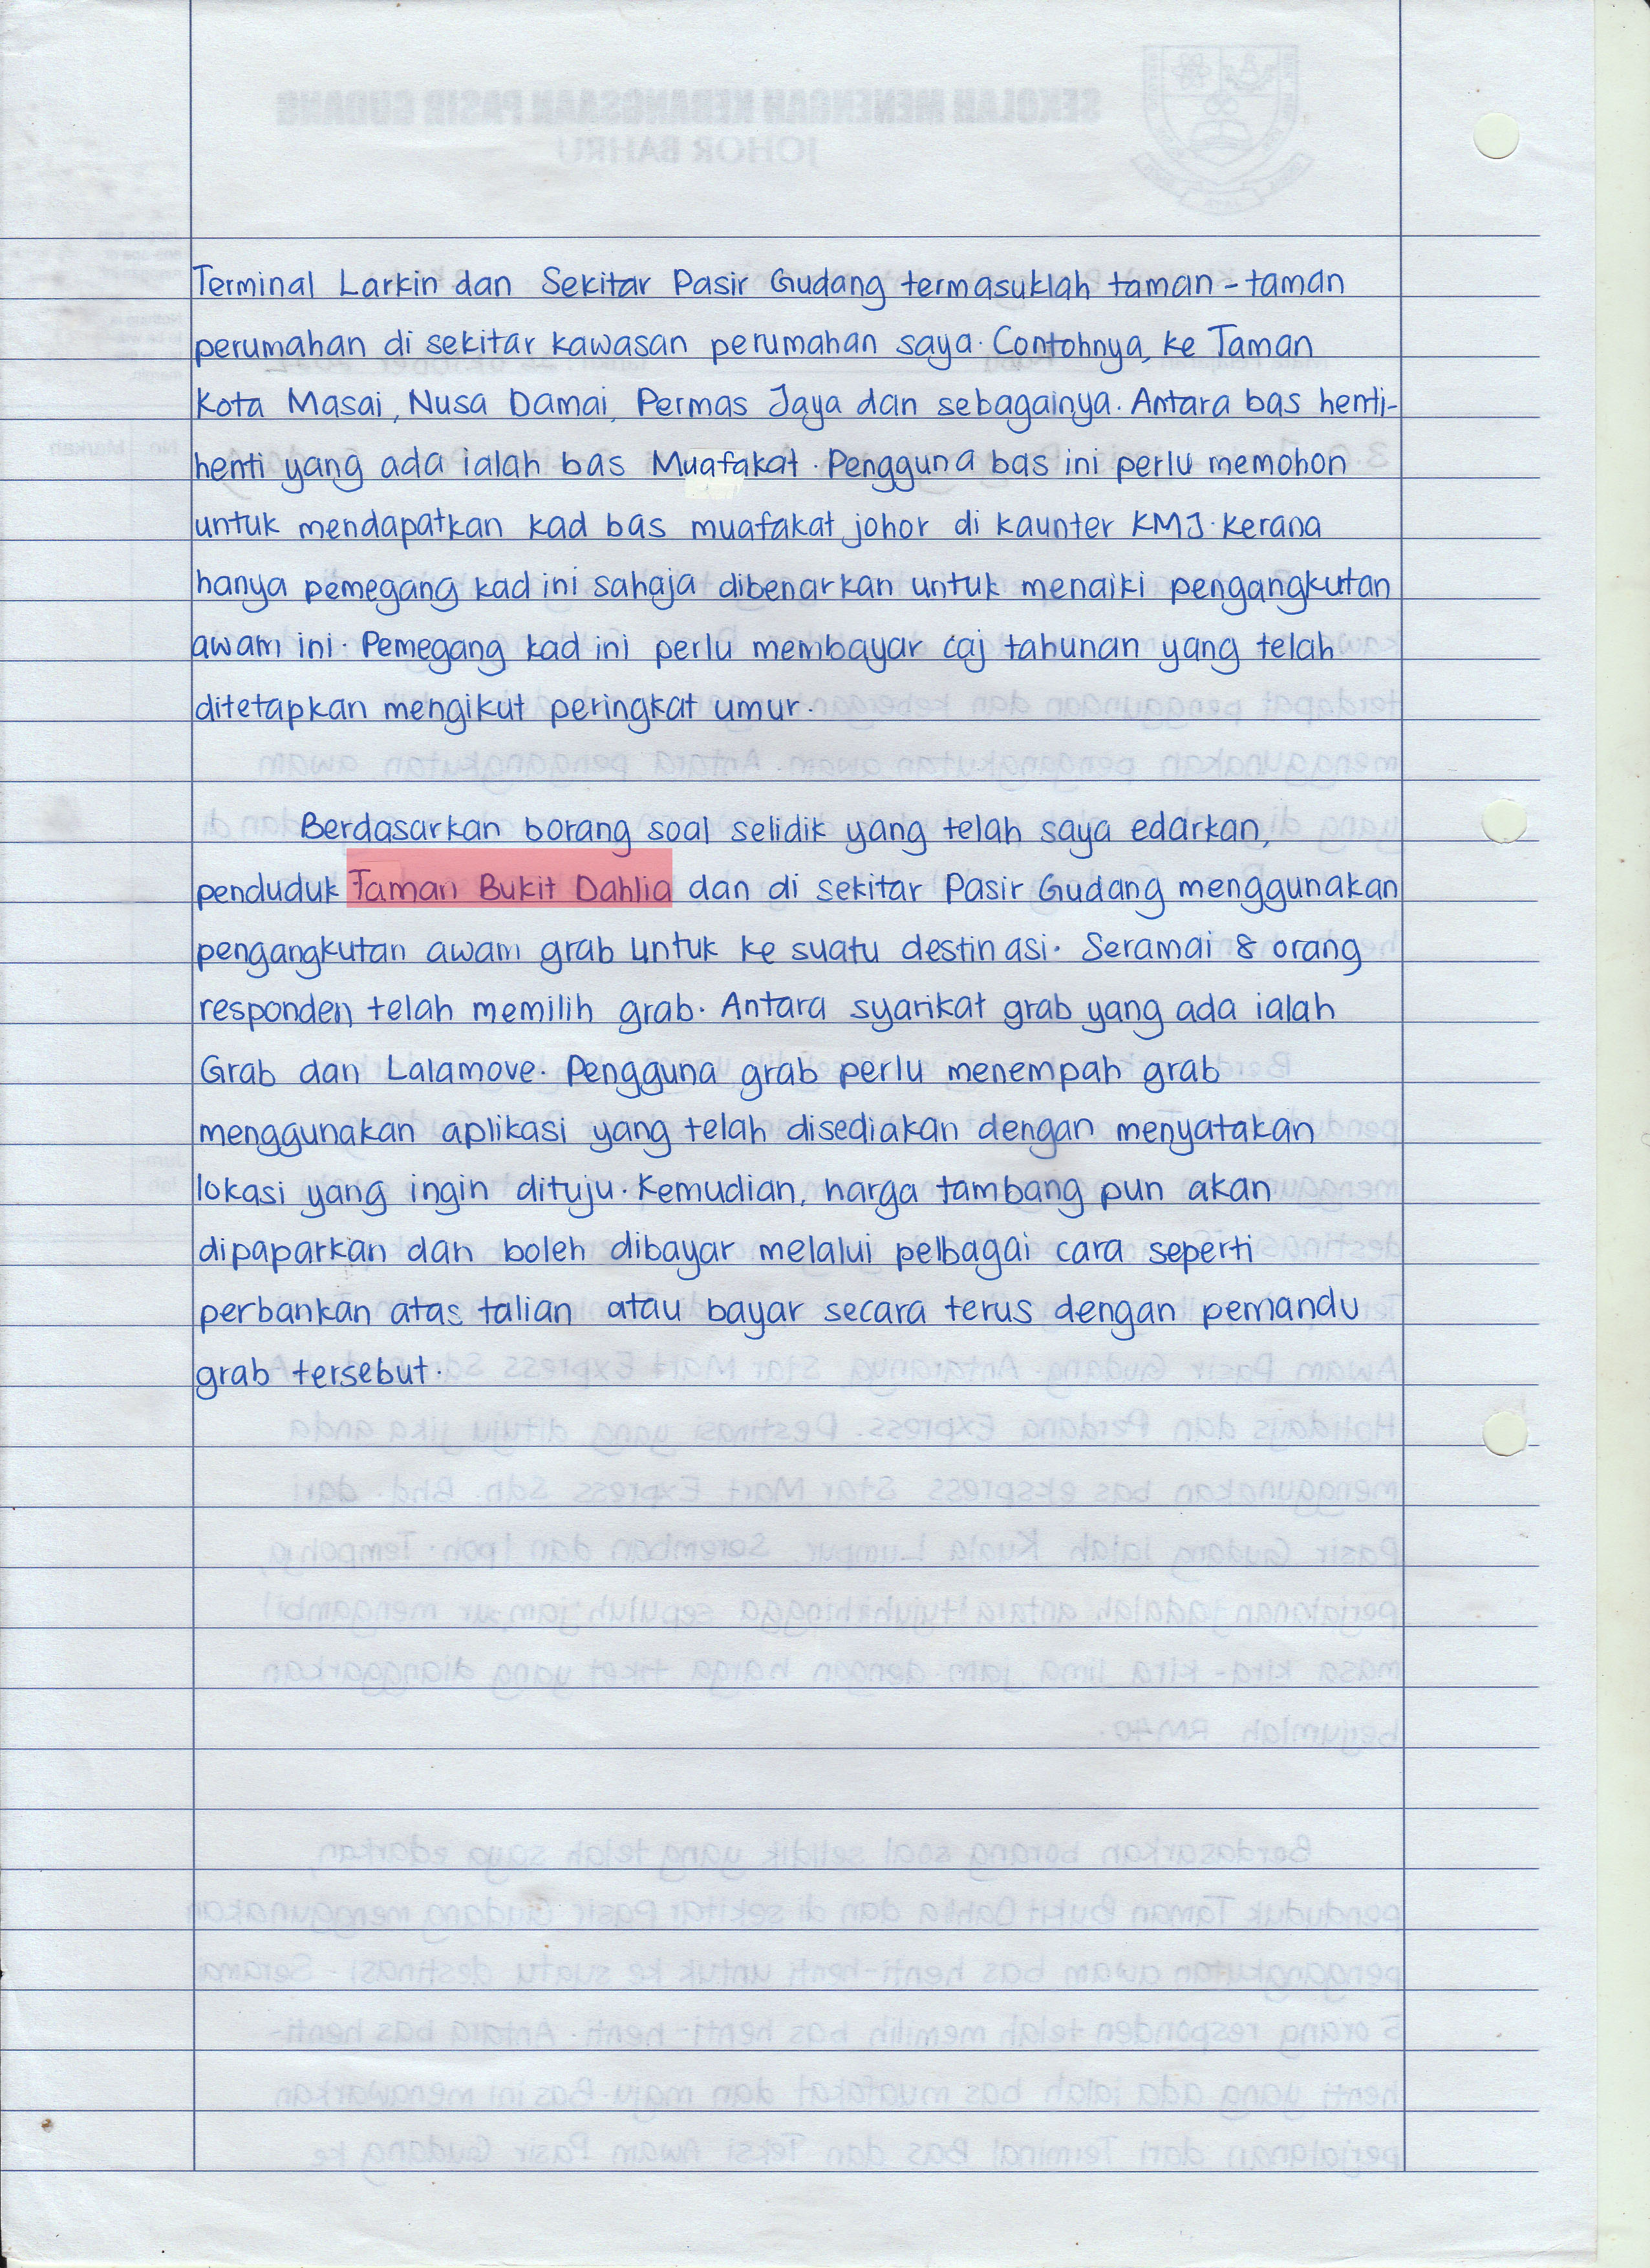 Terminal Larkin dan Sekitar Pasir Gudang termasuklah taman-taman
perumahan di sekitar kawasan perumahan saya. Contohnya, ke Taman
Kota Masai, Nusa Damai, Permas Jaya dan sebagainya. Antara bas henti-
henti yang ada ialah bas Muafakat. Pengguna bas ini perlu memohon
untuk mendapatkan kad bas muafakat johor di kaunter KMJ. Kerana
hanya pemegang kad ini sahaja dibenarkan untuk menaiki pengangkutan
awam ini. Pemegang kad ini perlu membayar caj tahunan yang telah
ditetapkan mengikut peringkat umur.
Berdasarkan borang soal selidik yang telah saya edarkan,
penduduk Taman Bukit Dahlia dan di sekitar Pasir Gudang menggunakan
pengangkutan awam grab untuk ke suatu destinasi. Seramai 8 orang
responden telah memilih grab. Antara syarikat grab yang ada ialah
Grab dan Lalamove. Pengguna grab perlu menempah grab
menggunakan aplikasi yang telah disediakan dengan menyatakan
lokasi yang ingin dituju. Kemudian, harga tambang pun akan
dipaparkan dan boleh dibayar melalui pelbagai cara seperti
perbankan atas talian atau bayar secara terus dengan pemandu
grab tersebut.